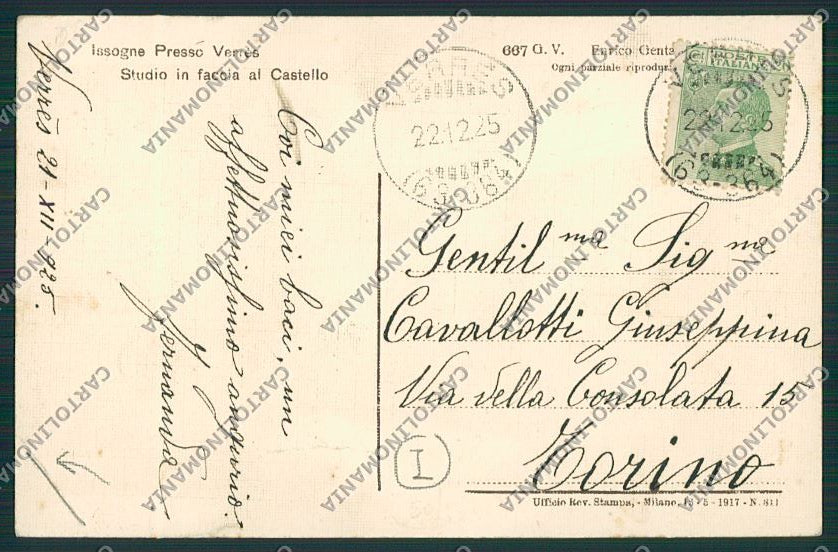 Issogne Presso Verrès
Studio in faccia al Castello
667 G. V. Enrico Genta
Ogni parziale riprodu
Verrès 21-XII-925.
Coi miei baci, un
affettuosissimo augurio
Fernanda
VERRES
22.12.25
(63-364)
VERRES
22.12.25
(63-364)
Gentil ma Sig na
Cavallotti Giuseppina
Via della Consolata 15
Torino
I
Ufficio Rev. Stampa, - Milano, 15-5-1917 - N. 811
CARTOLINOMANIA